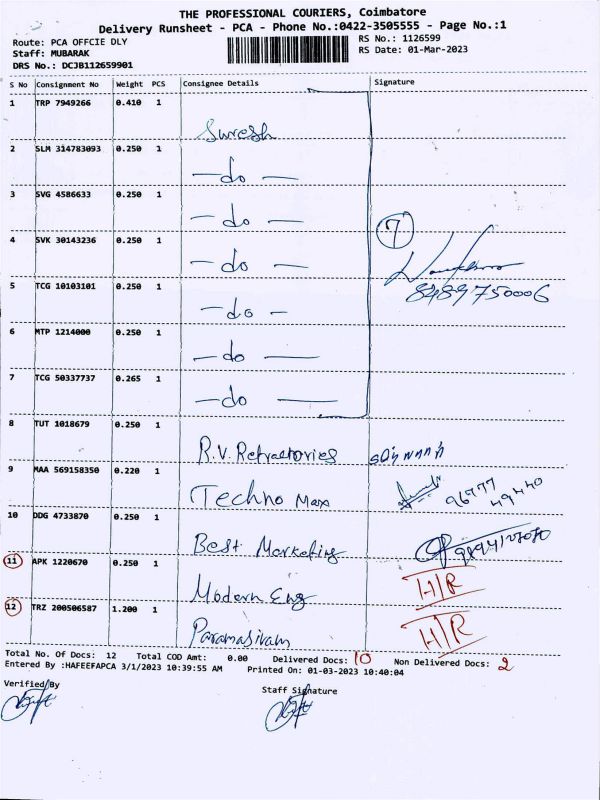 THE PROFESSIONAL COURIERS, Coimbatore
Delivery Runsheet - PCA - Phone No.:0422-3505555 - Page No.:1
Route: PCA OFFCIE DLY
RS No.: 1126599
Staff: MUBARAK
RS Date: 01-Mar-2023
DRS No.: DCJB112659901
S No Consignment No Weight PCS Consignee Details Signature
1 TRP 7949266 0.410 1
Suresh
2 SLM 314783093 0.250 1
-do-
3 SVG 4586633 0.250 1
-do-
7
4 SVK 30143236 0.250 1
-do-
5 TCG 10103101 0.250 1
8489750006
-do-
6 MTP 1214000 0.250 1
-do-
7 TCG 50337737 0.265 1
-do-
8 TUT 1018679 0.250 1
R.V. Refractories
9 MAA 569158350 0.220 1
Techno Max
96777 49440
10 DDG 4733870 0.250 1
Best Marketing
11 APK 1220670 0.250 1
Modern Eng H/R
12 TRZ 200506587 1.200 1
Paramasivam H/R
Total No. Of Docs: 12 Total COD Amt: 0.00 Delivered Docs: 10 Non Delivered Docs: 2
Entered By :HAFEEFAPCA 3/1/2023 10:39:55 AM Printed On: 01-03-2023 10:40:04
Verified By
Staff Signature